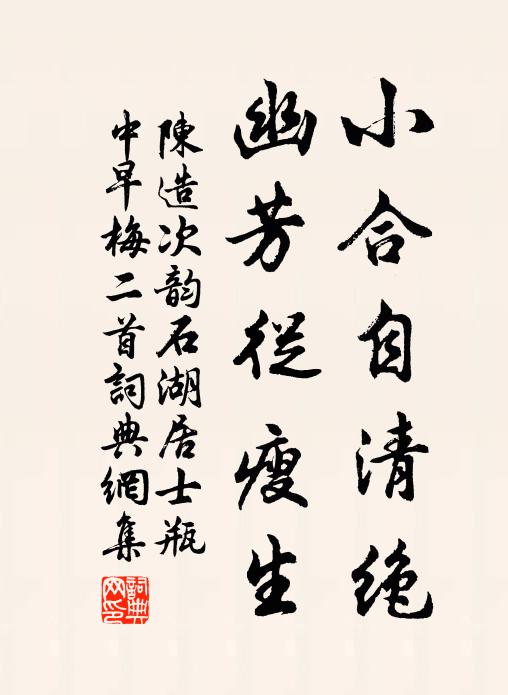 小合自清絶
幽芳從瘦生
陳造次韵石湖居士瓶
中早梅二首詞典網集
詞典網印